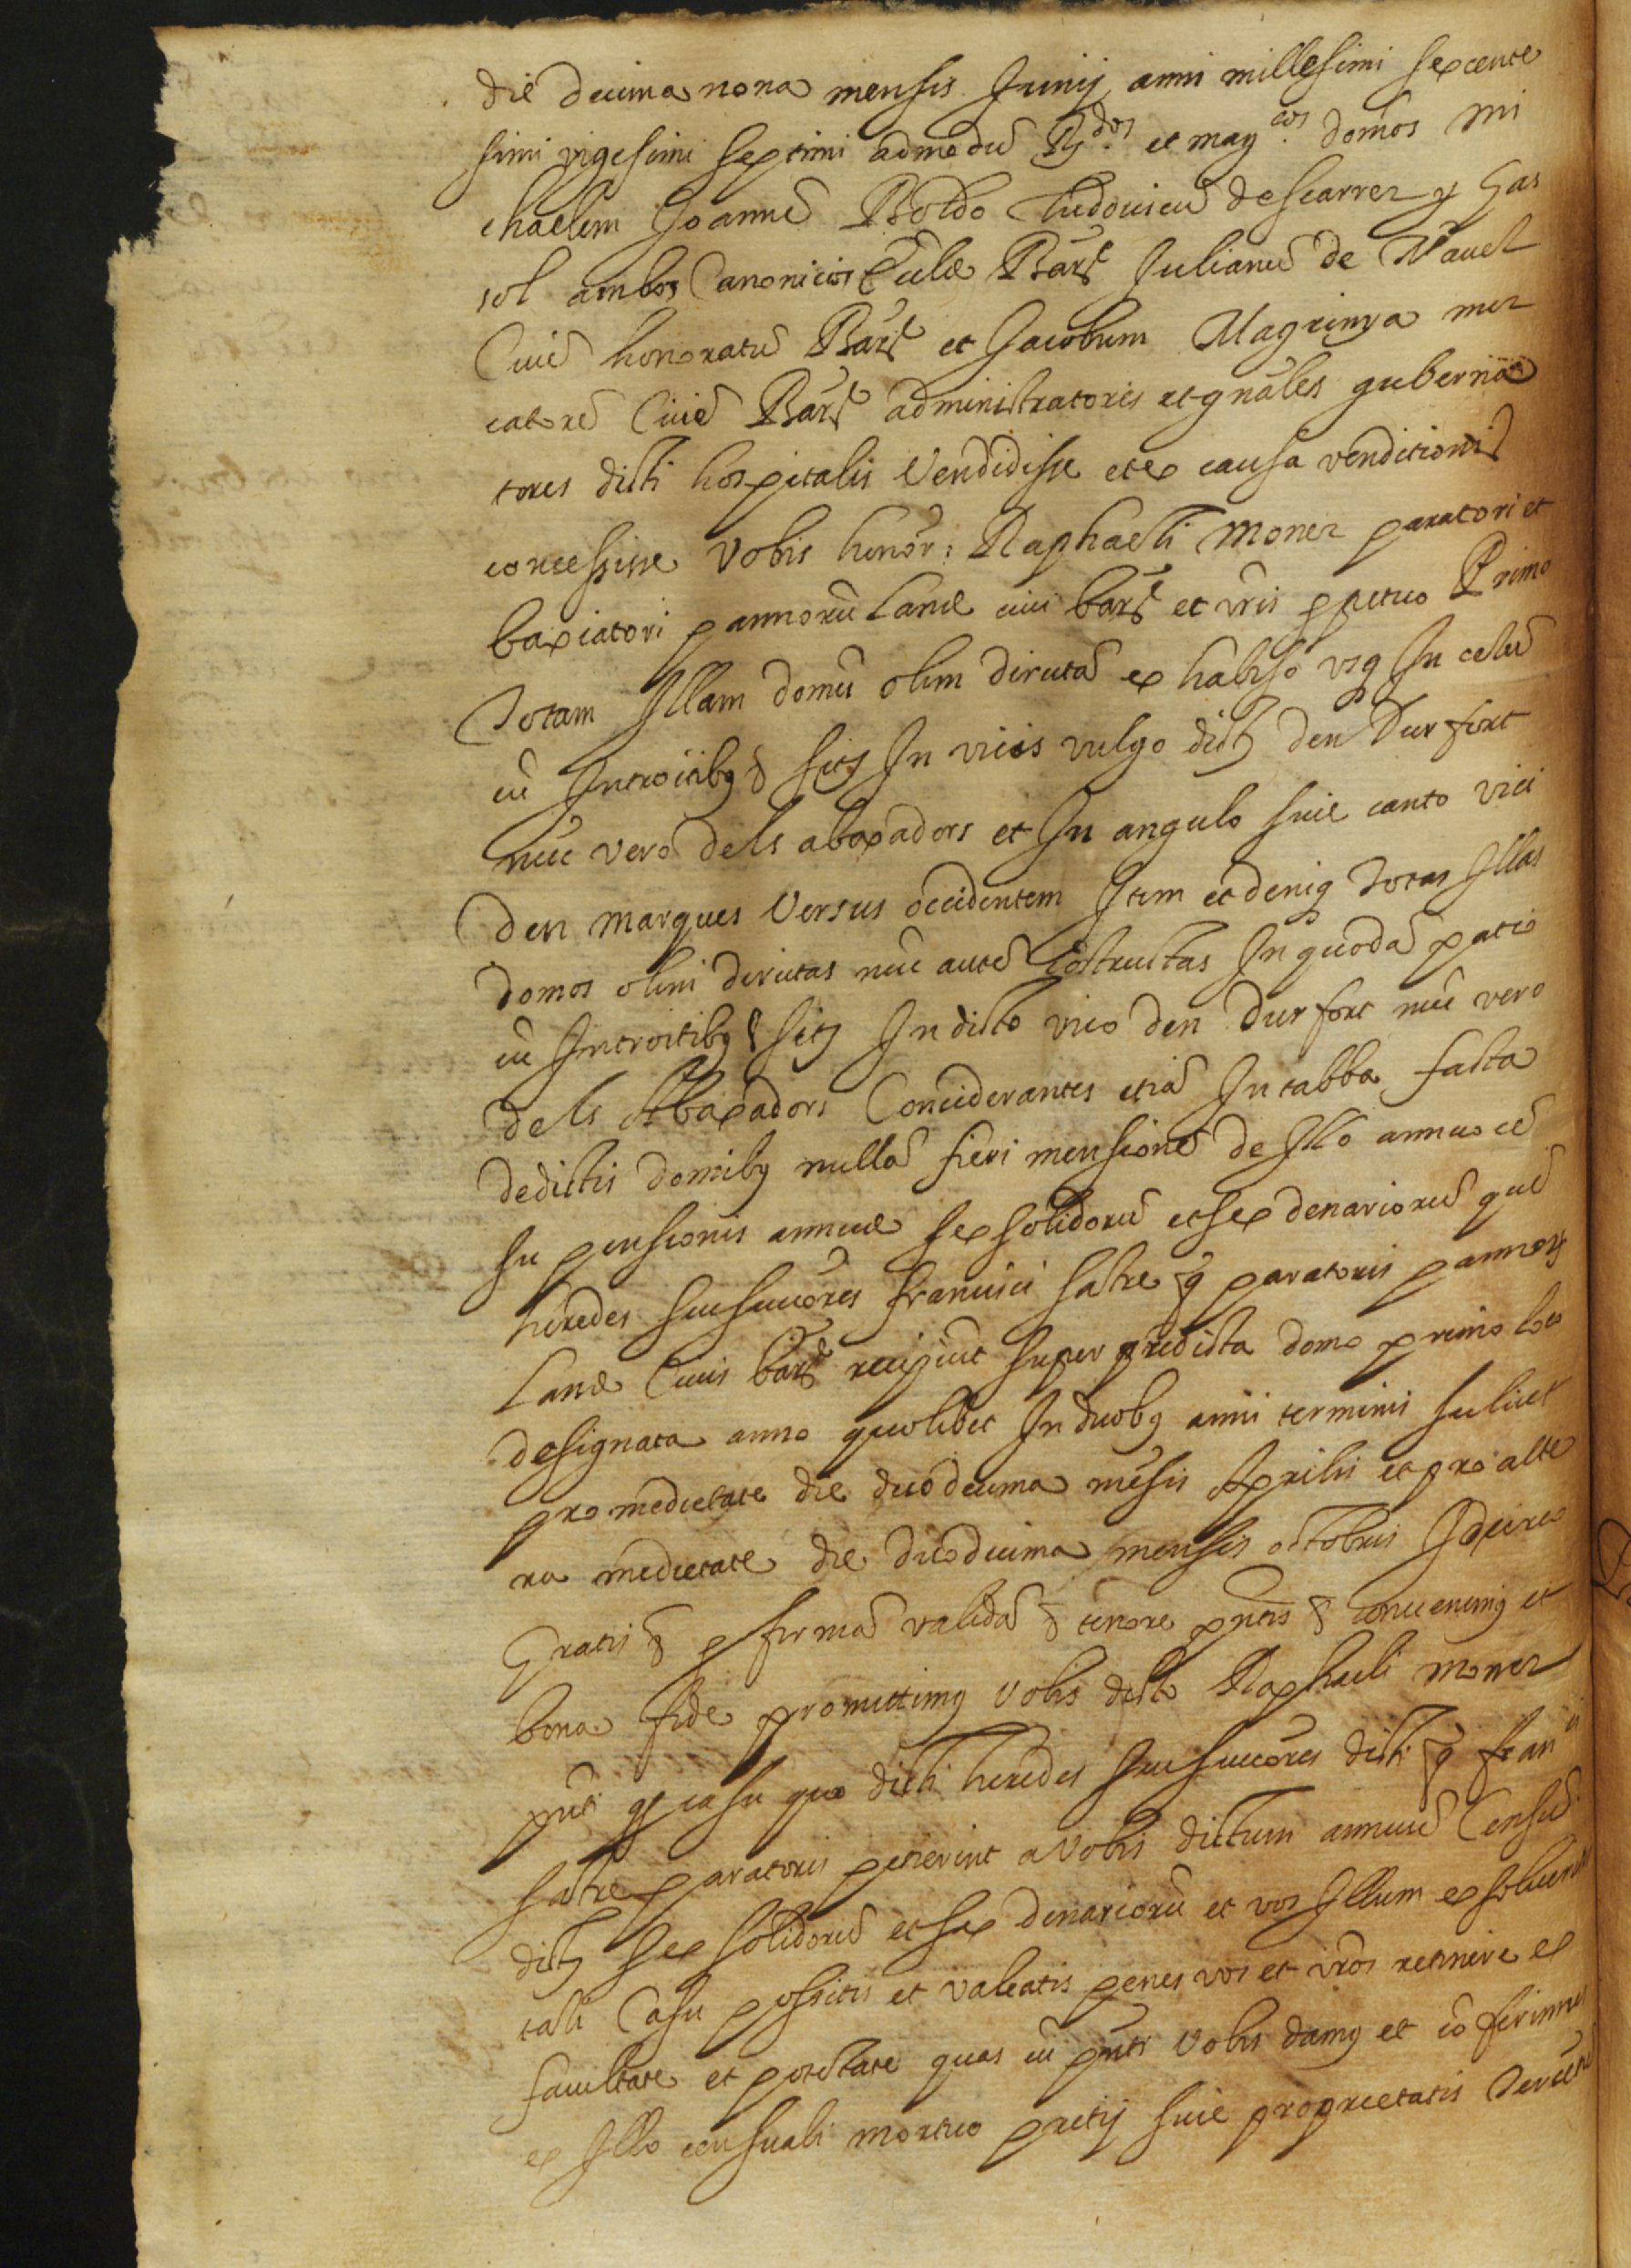 die decima nona mensis Junij anni millesimi sexcente
simi vigesimi septimi admodũ Rdos. et magcos. domos mi
chaelem Joannẽ Boldo Ludouicũ descarrer y Gas
sol ambos Canonicos Eccliæ Barñ Julianũ de Nauel
Ciuẽ honoratũ Barñ et Jacobum Magrinya mer
catorẽ Ciuẽ Barñ administratores et gñales guberna
tores dicti hospitalis Vendidisse et ex causa venditionis
concessisse Vobis honor: Raphaeli moner paratori et
baxiatori pannorũ Lanæ ciui barñ et vris perpetuo Primo
Totam Illam domũ olim dirutã ex habiso vsq In celũ
cũ Introitibq & sitã In vico vulgo dicto den Durfort
nũc vero dels abaxadors et In angulo siue canto vici
den marques Versus occidentem Item et deniq Totas Illas
domos olim dirutas nũc autẽ cõstructas In quodã patio
cũ Introitibq & sitas In dicto vico den Durfort nũc vero
dels Abaxadors Conciderantes etiã In tabba facta
de dictis domibq nullã fieri mensionẽ de Illo annuo cẽ
su pensionis annuæ sex solidorũ et sex denariorũ quẽ
heredes siue succõres francisci satre q̃ paratoris pannorũ
Lanæ Ciuis barñ recipiũt super predicta domo primo loco
designata anno quolibet In duobq anni terminis scilicet
pro medietate die duodecima mẽsis Aprilis et pro alte
ra medietate die duodecima mensis octobris Idcirco
Gratis & per firmã validã & tenore pñtis & conuenimq et
bona fide promittimq vobis dicto Raphaeli moner
pñti q casu quo dicti heredes siue succõres dicti q̃ franci
satre paratoris petierint a Vobis dictum annuũ Censũ
dictorũ sex solidorũ et sex denariorũ et vos Illum exsoluendo
tali Casu possitis et valeatis penes vos et vros retinere ex
facultate et potestate quas cũ pñti vobis damq et cõferimus
ex Illo censuali mortuo pretij siue proprietatis